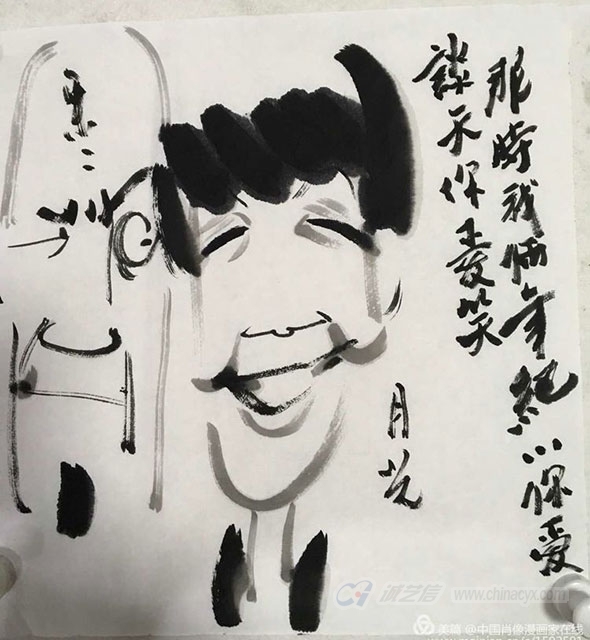 那時我倆年紀小你愛
談天你愛笑
月光
诚艺信 www.chinacyx.com
美篇 @中国肖像漫画家在线